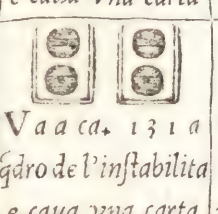 e caua vna carta
Vaa ca. 131 a
q̃dro de l'inſtabilita
e caua vna carta